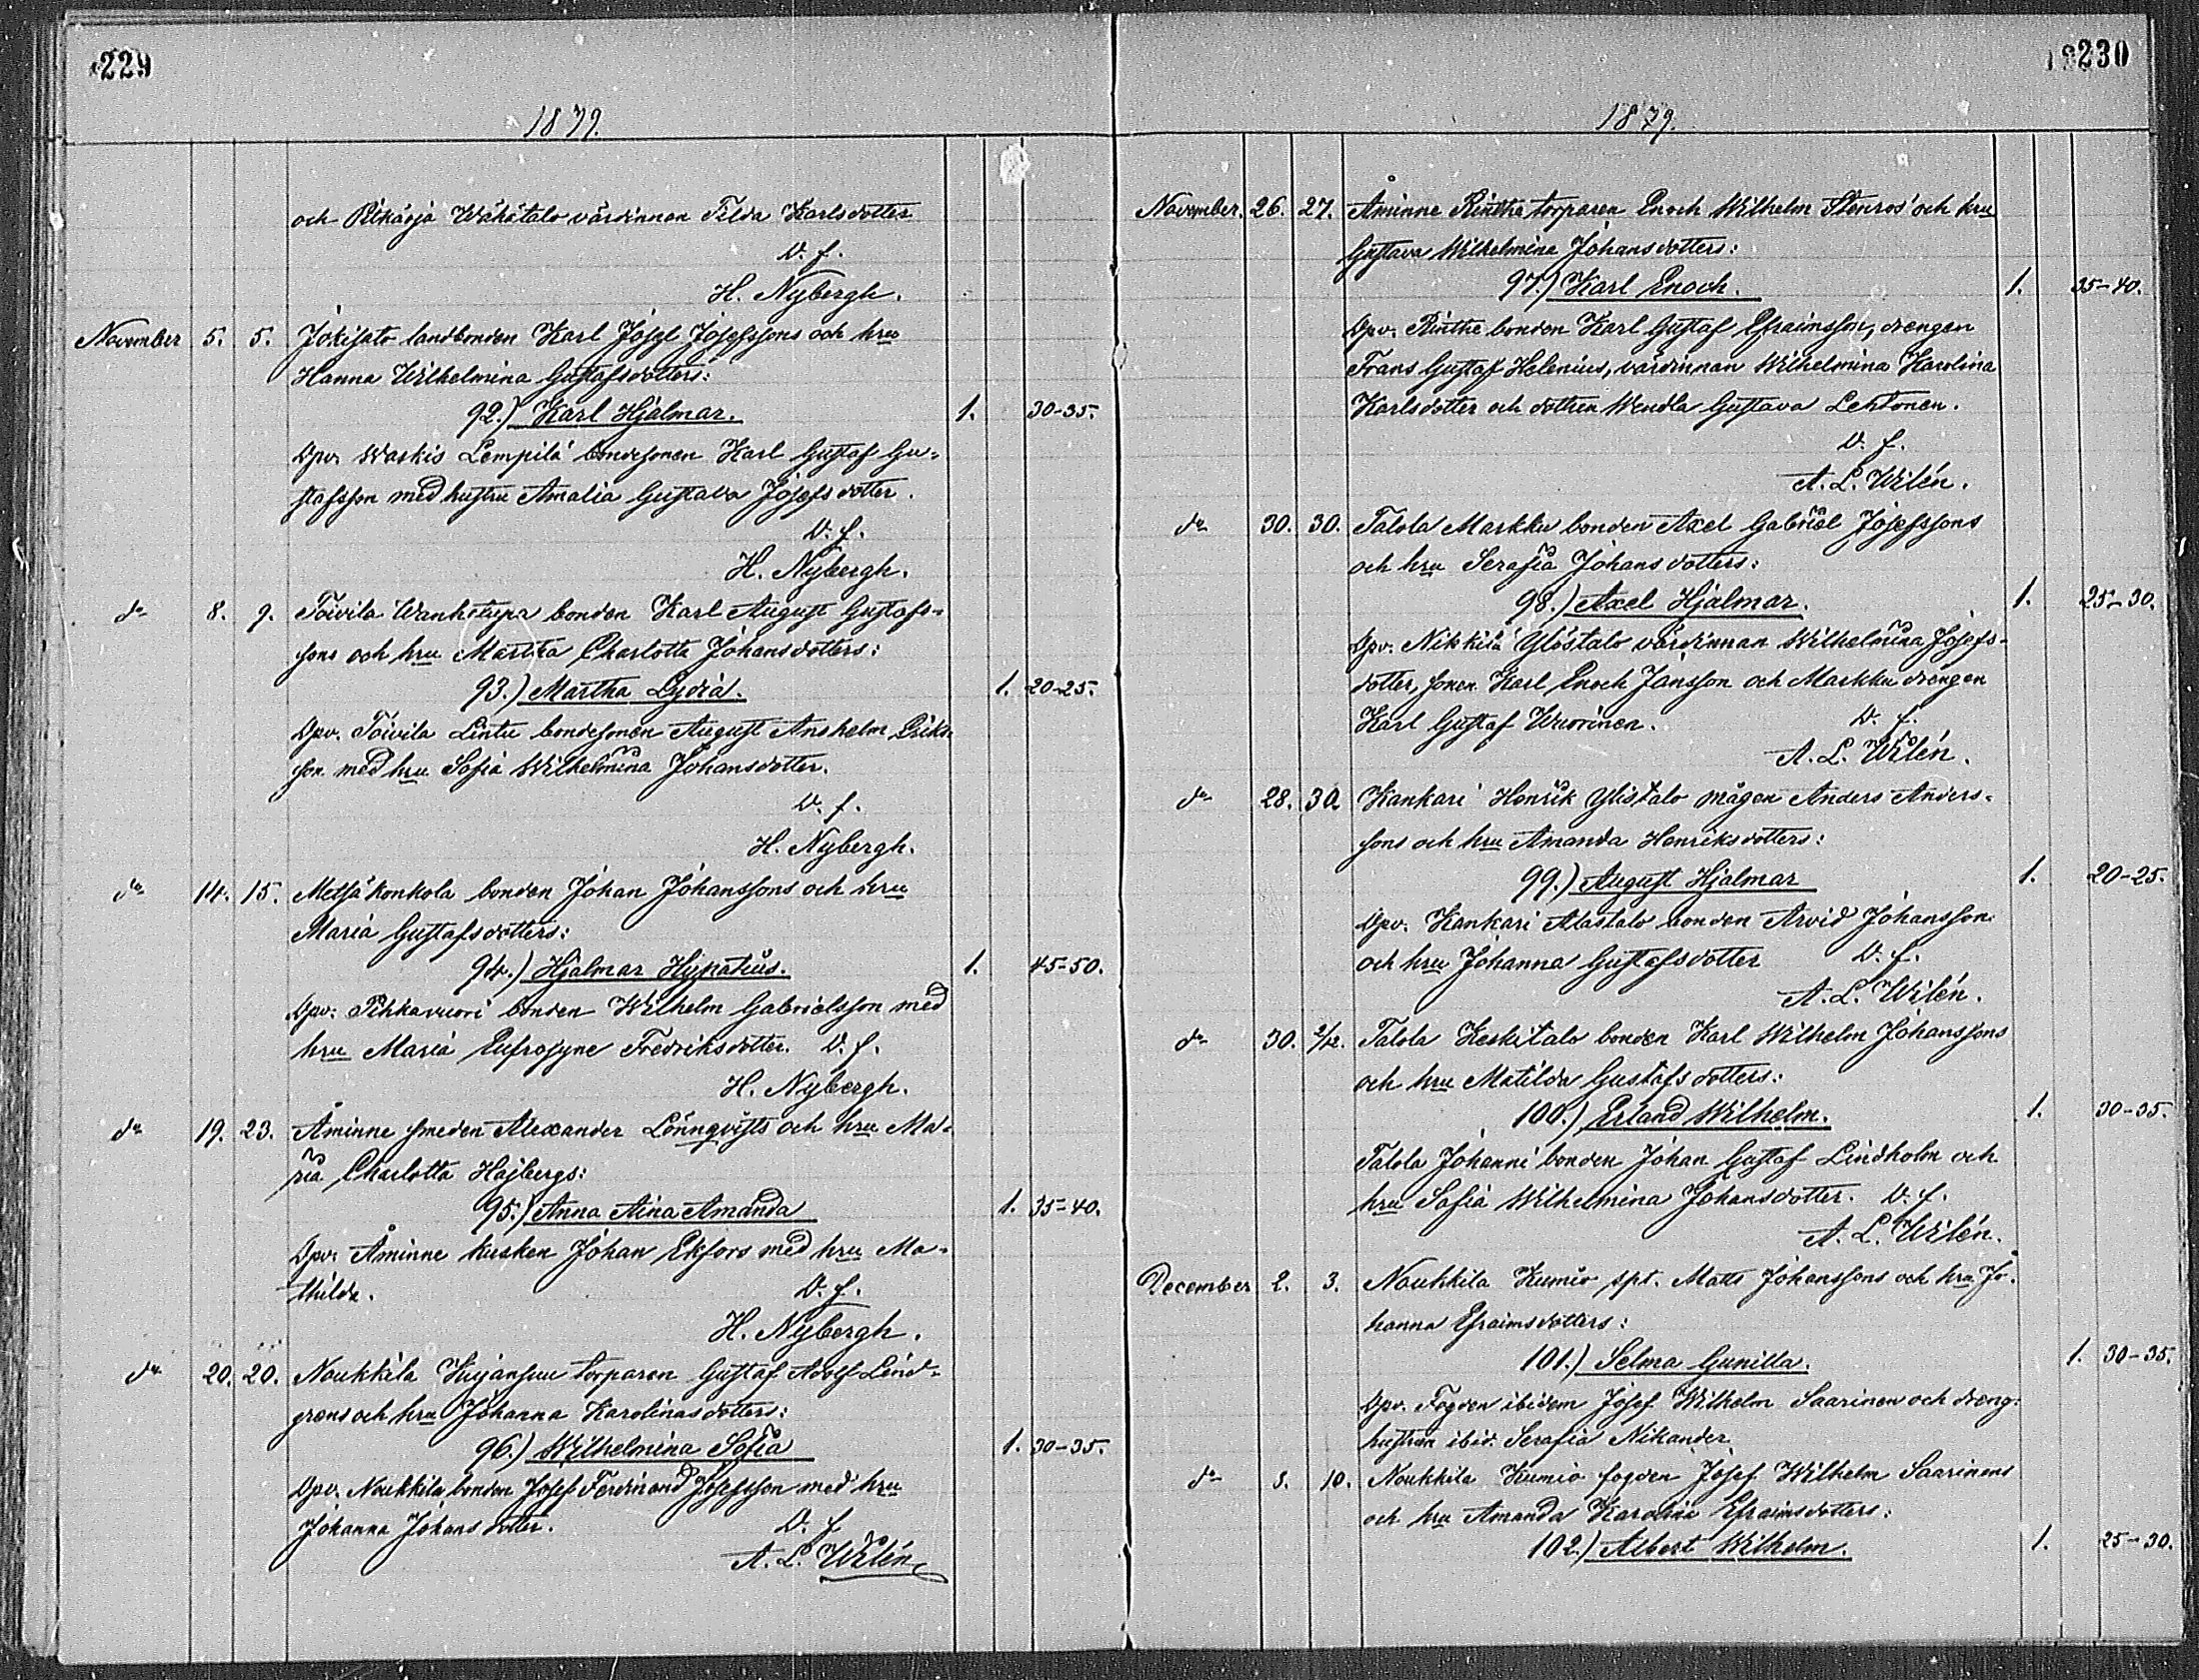 229
1879.
och Pitkäoja Wähätalo värdinnan Tilda Karlsdotter
D. f.
H. Nybergh.
November 5. 5. Jokisato landbonden Karl Josef Josefssons och hru
Hanna Wilhelmina Gustafsdotters:
92.) Karl Hjalmar. 1. 30-35.
Dpv. Waskis Lempilä bondesonen Karl Gustaf Gu-
stafsson med hustru Amalia Gustava Josefsdotter.
D. f.
H. Nybergh.
do 8. 9. Toivila Wanhatupa bonden Karl August Gustafs-
sons och hru Martha Charlotta Johansdotters:
93.) Martha Lydia. 1. 20-25.
Dpv. Toivila Lintu bondesonen August Anshelm Eriks-
son med hru Sofia Wilhelmina Johansdotter.
D. f.
H. Nybergh.
do 14. 15. Metsäkonkola bonden Johan Johanssons och hru
Maria Gustafsdotters:
94.) Hjalmar Hypatius. 1. 45-50.
Dpv. Pihkavuori bonden Wilhelm Gabrielsson med
hru Maria Eufrosyne Fredriksdotter. D. f.
H. Nybergh.
do 19. 23. Åminne smeden Alexander Lönnqvists och hru Ma-
ria Charlotta Hajbergs:
95.) Anna Aina Amanda 1. 35-40.
Dpv. Åminne kusken Johan Ekfors med hru Ma-
thilda. D. f.
H. Nybergh.
do 20. 20. Noukkila Kujansuu torparen Gustaf Adolf Lind-
grens och hru Johanna Karolinasdotters:
96.) Wilhelmina Sofia 1. 30-35.
Dpv. Noukkila bonden Josef Ferdinand Josefsson med hru
Johanna Johansdotter. D. f.
A. L. Wilén
230
1879.
November. 26. 27. Åminne Rinthe torparen Enoch Wilhelm Stenros och hru
Gustava Wilhelmina Johansdotters:
97.) Karl Enoch. 1. 35-40.
Dpv. Rinthe bonden Karl Gustaf Efraimsson, drengen
Frans Gustaf Helenius, värdinnan Wilhelmina Karolina
Karlsdotter och dottren Wendla Gustava Lehtonen.
D. f.
A. L. Wilén.
do 30. 30. Talola Markku bonden Axel Gabriel Josefssons
och hru Serafia Johansdotters:
98.) Axel Hjalmar. 1. 25-30.
Dpv. Nikkilä Ylöstalo värdinnan Wilhelmina Josefs-
dotter, sonen Karl Enoch Jansson och Markku drengen
Karl Gustaf Wuorinen. D. f.
A. L. Wilén.
do 28. 30. Kankari Henrik Ylistalo mågen Anders Anders-
sons och hru Amanda Henriksdotters:
99.) August Hjalmar 1. 20-25.
Dpv. Kankari Alastalo bonden Arvid Johansson
och hru Johanna Gustafsdotter D. f.
A. L. Wilén.
do 30. 2/12. Talola Keskitalo bonden Karl Wilhelm Johanssons
och hru Matilda Gustafsdotters:
100.) Erland Wilhelm. 1. 30-35.
Talola Johanni bonden Johan Gustaf Lindholm och
hru Sofia Wilhelmina Johansdotter. D. f.
A. L. Wilén.
December 2. 3. Noukkila Kumio spt. Matts Johanssons och hru Jo-
hanna Efraimsdotters:
101.) Selma Gunilla. 1. 30-35.
Dpv. Fogden ibidem Josef Wilhelm Saarinen och dreng-
hustrun ibid. Serafia Nikander.
do 8. 10. Noukkila Kumio fogden Josef Wilhelm Saarinens
och hru Amanda Karolina Efraimsdotters:
102.) Albert Wilhelm. 1. 25-30.